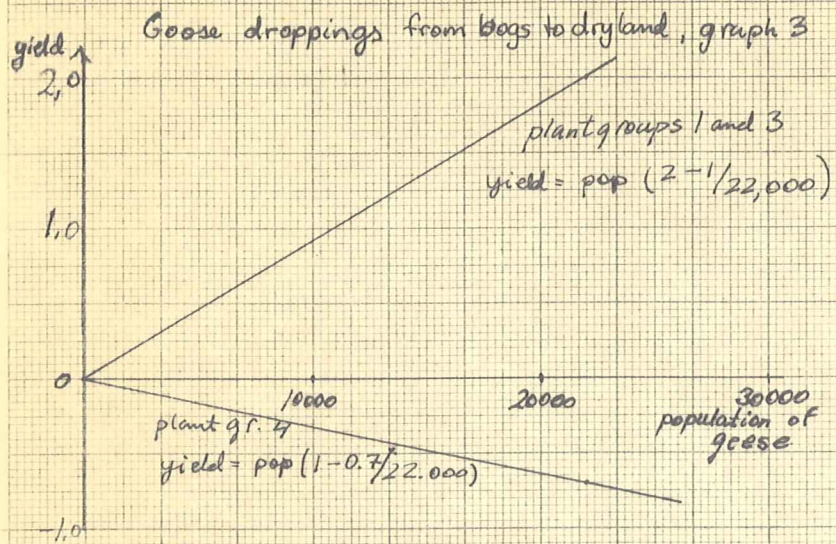 Goose droppings from bogs to dryland, graph 3
yield
2,0
plantgroups 1 and 3
yield = pop (2-1/22,000)
1,0
0
10000
20000
30000
population of
geese
plant gr. 4
yield = pop (1-0.7/22.000)
-1,0